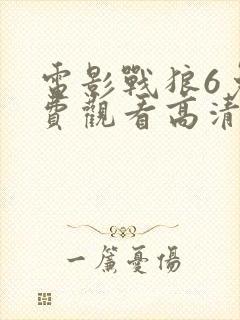 電影戰狼6免
費觀看高清
一簾憂傷